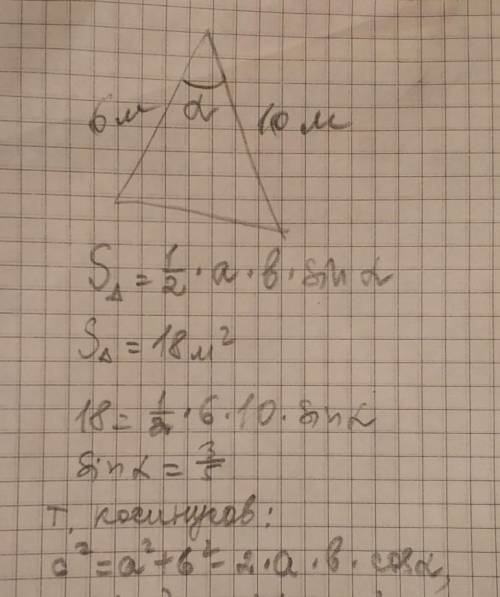 6 м α 10 м
S△ = 1/2 · a · b · sin α
S△ = 18 м²
18 = 1/2 · 6 · 10 · sin α
sin α = 3/5
т. косинусов:
c² = a² + b² - 2 · a · b · cos α,